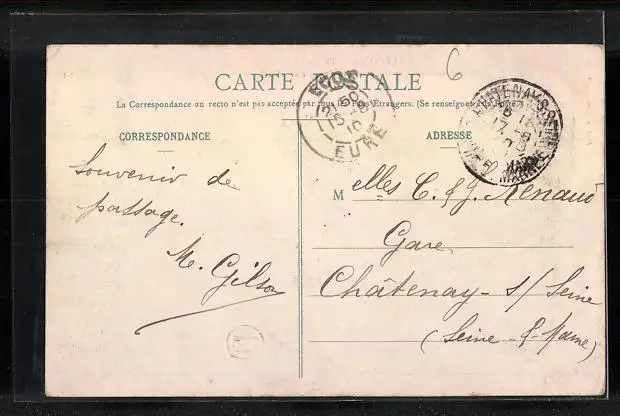 6
CARTE POSTALE
La Correspondance au recto n'est pas acceptée par tous les Pays Étrangers. (Se renseigner à la Poste)
CORRESPONDANCE
ADRESSE
ECOS
EURE
Souvenir de
passage.
M. Gilson
Melles C. & J. Renaud
Gare
Châtenay-s/Seine
(Seine-&-Marne)